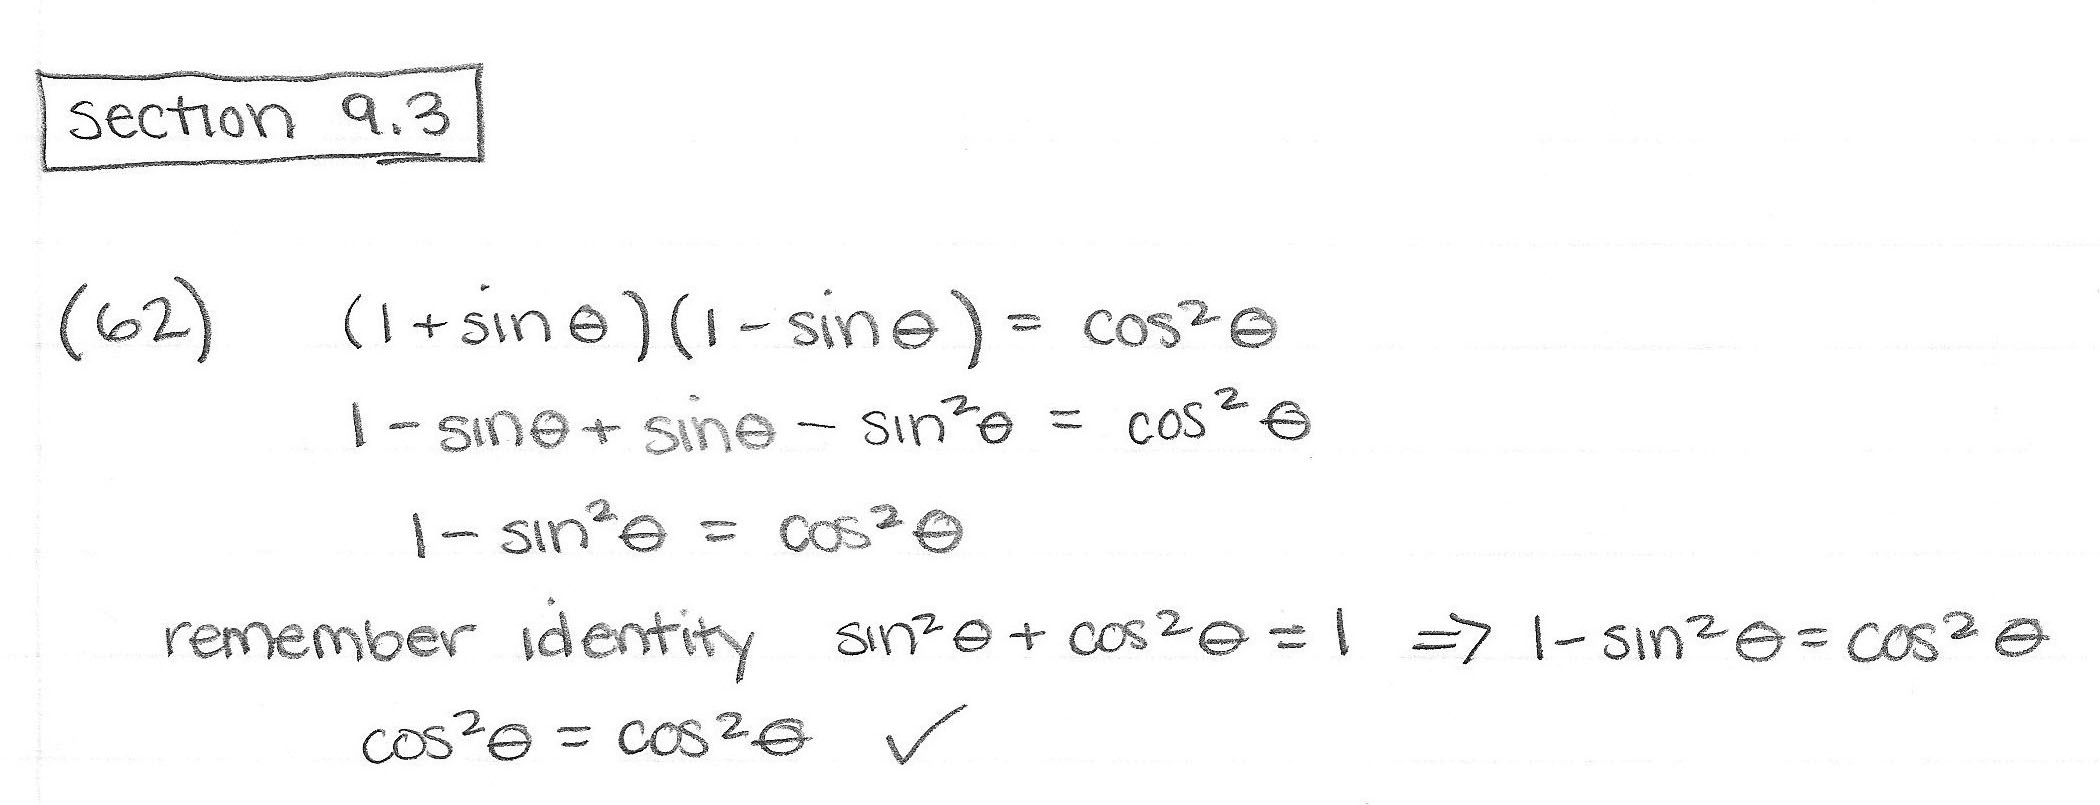 section 9.3
(62) (1+sinθ)(1-sinθ) = cos²θ
1-sinθ+sinθ - sin²θ = cos²θ
1-sin²θ = cos²θ
remember identity sin²θ + cos²θ = 1 => 1-sin²θ = cos²θ
cos²θ = cos²θ ✓